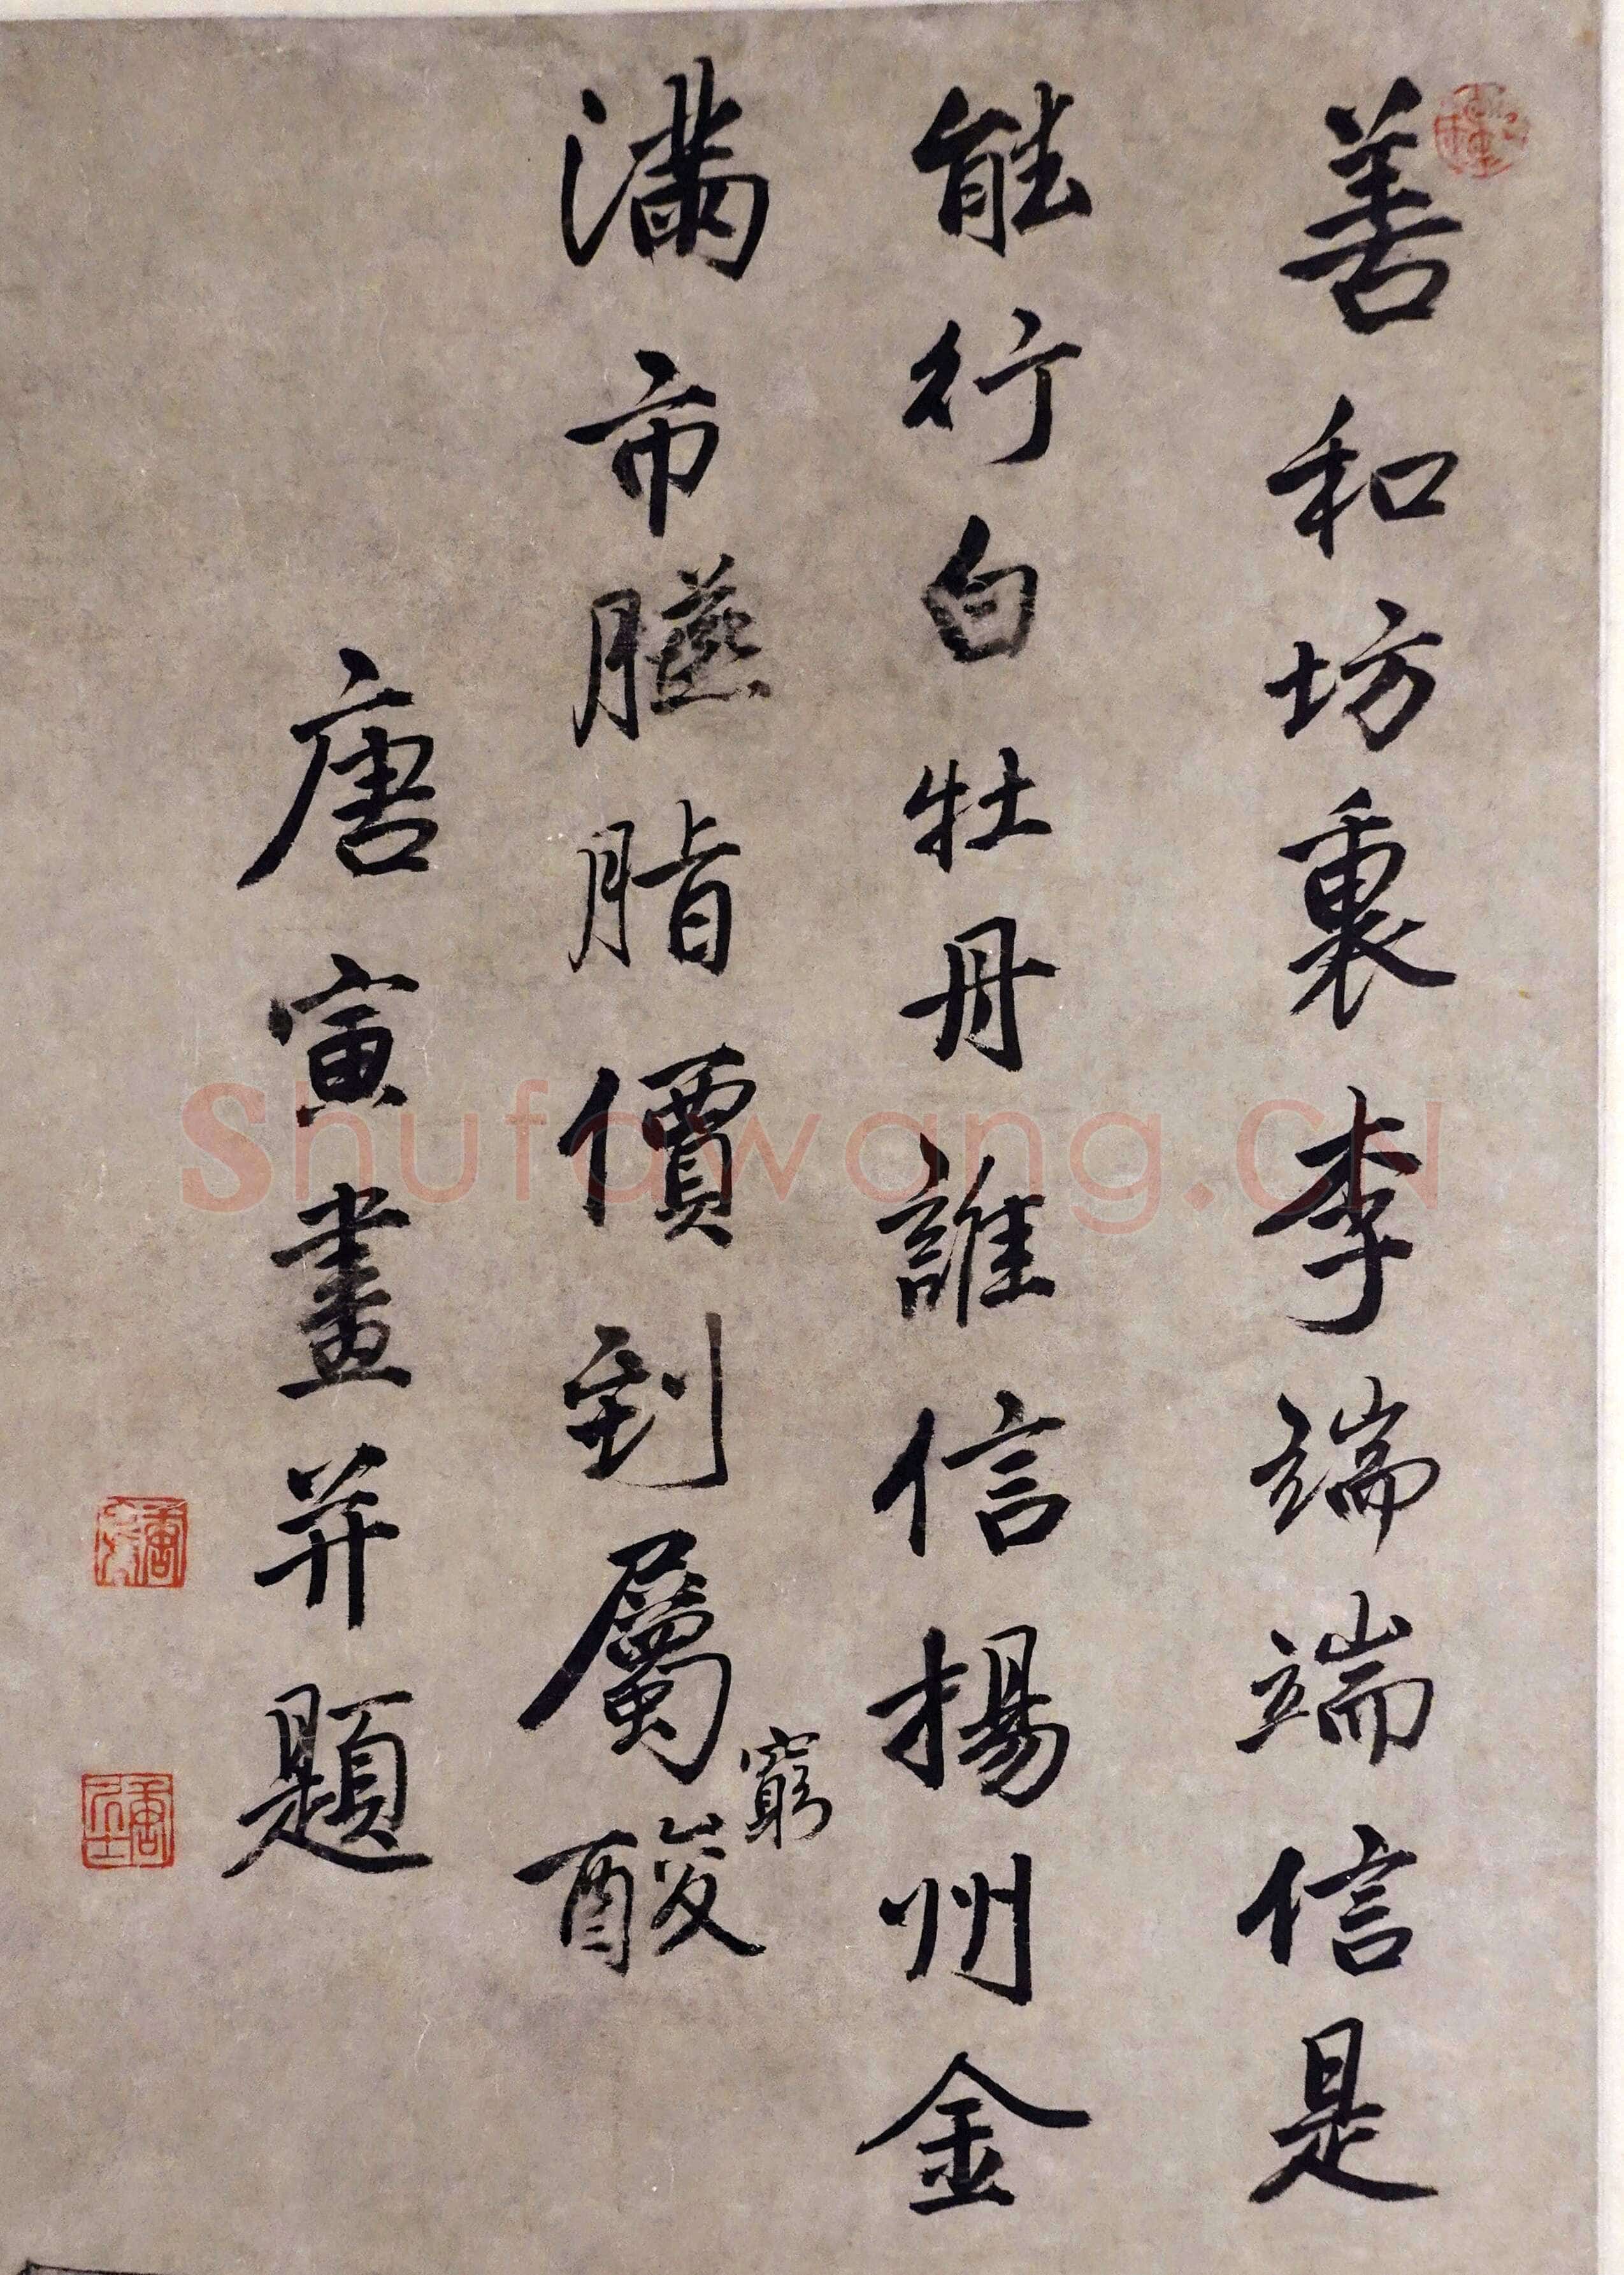 善和坊裏李端端信是
能行白牡丹誰信揚州金
滿市臙脂價到屬酸
窮
唐寅畫并題
Shufawang.CN